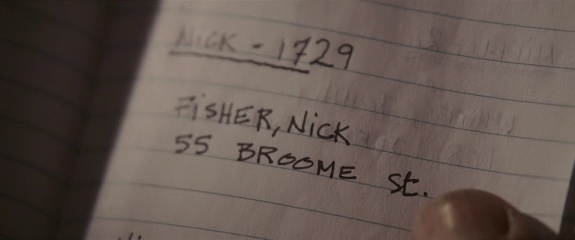 NiCK - 1729
FiSHER, NiCK
55 BROOME St.